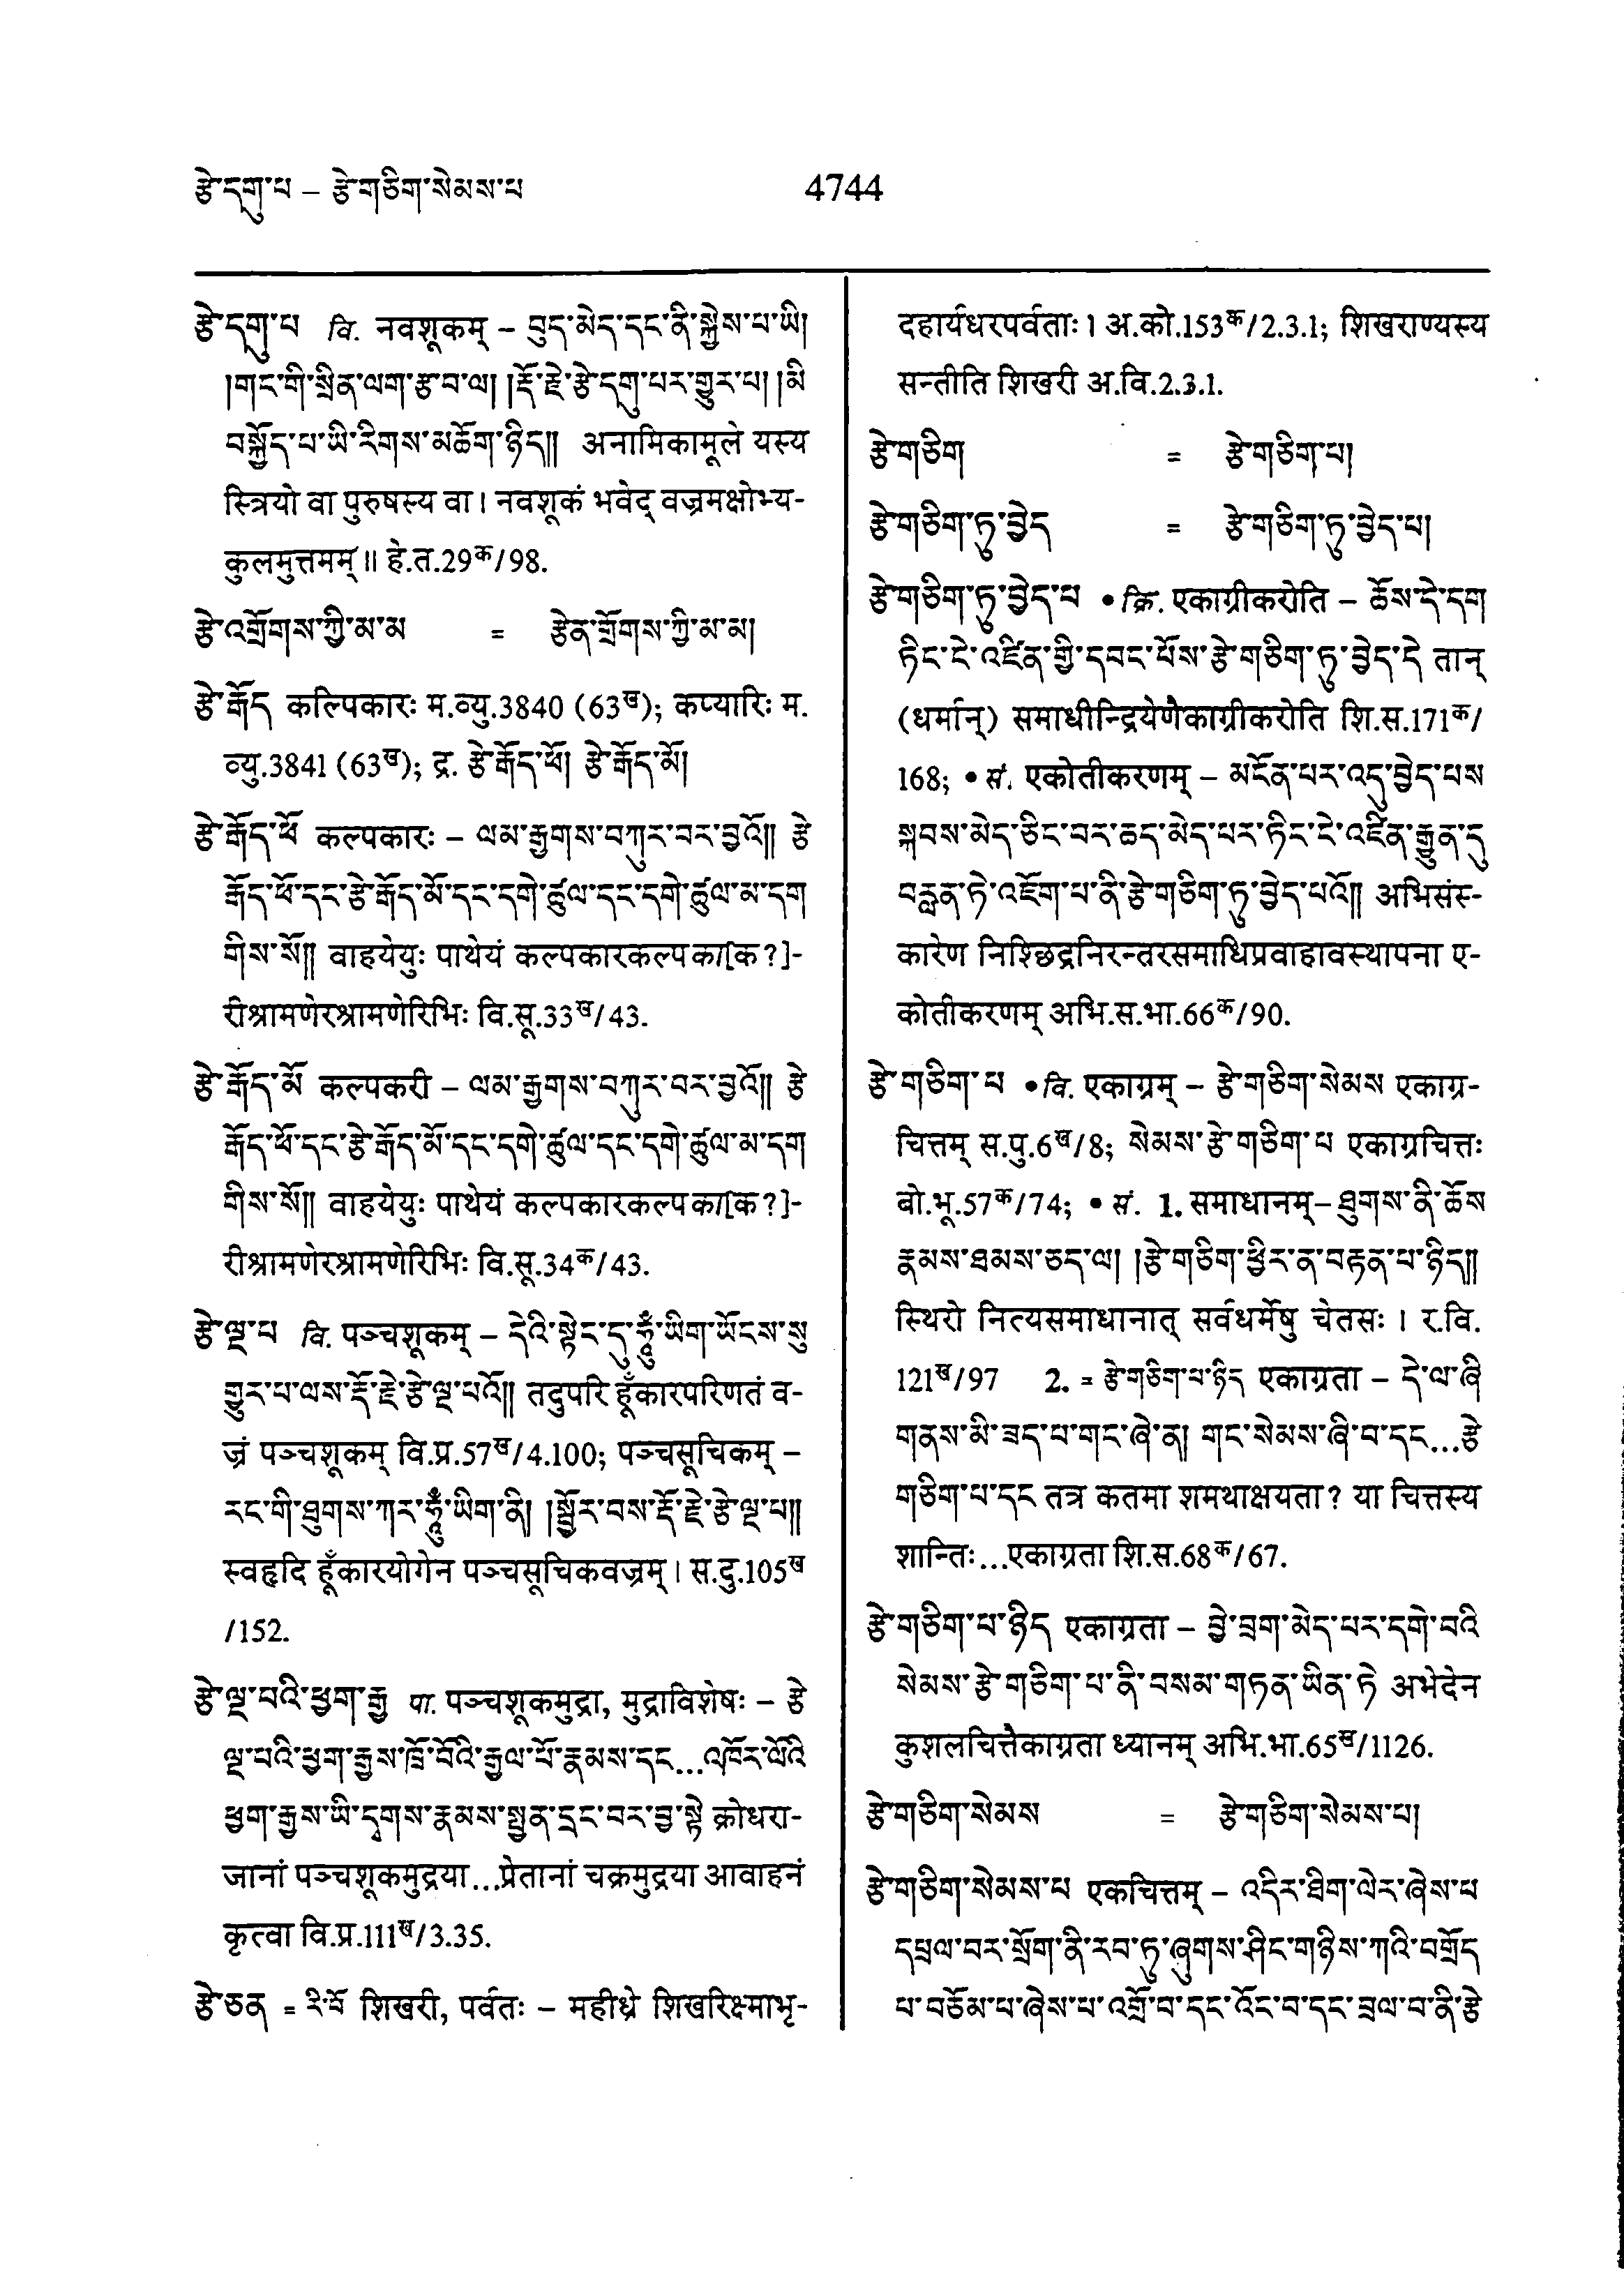 རྩེ་དགུ་པ – རྩེ་གཅིག་སེམས་པ
4744
རྩེ་དགུ་པ वि. नवशूकम् – བུད་མེད་དང་ནི་སྐྱེས་པ་ཡི།
།གང་གི་སྲིན་ལག་རྩ་བ་ལ། །རྡོ་རྗེ་རྩེ་དགུ་པར་གྱུར་པ། །མི
བསྐྱོད་པ་ཡི་རིགས་མཆོག་ཉིད།། अनामिकामूले यस्य
स्त्रियो वा पुरुषस्य वा । नवशूकं भवेद् वज्रमक्षोभ्य-
कुलमुत्तमम् ॥ हे.त.29क/98.
རྩེ་འགྲོགས་ཀྱི་མ་མ = རྩེན་གྲོགས་ཀྱི་མ་མ།
རྩེ་རྒོད कल्पिकारः म.व्यु.3840 (63ख); कप्यारिः म.
व्यु.3841 (63ख); द्र. རྩེ་རྒོད་ཕོ། རྩེ་རྒོད་མོ།
རྩེ་རྒོད་ཕོ कल्पकारः – ལམ་རྒྱགས་བཀུར་བར་བྱའོ།། རྩེ
རྒོད་ཕོ་དང་རྩེ་རྒོད་མོ་དང་དགེ་ཚུལ་དང་དགེ་ཚུལ་མ་དག
གིས་སོ།། वाहयेयुः पाथेयं कल्पकारकल्पका[क ?]-
रीश्रामणेरश्रामणेरिभिः वि.सू.33ख/43.
རྩེ་རྒོད་མོ कल्पकरी – ལམ་རྒྱགས་བཀུར་བར་བྱའོ།། རྩེ
རྒོད་ཕོ་དང་རྩེ་རྒོད་མོ་དང་དགེ་ཚུལ་དང་དགེ་ཚུལ་མ་དག
གིས་སོ།། वाहयेयुः पाथेयं कल्पकारकल्पका[क ?]-
रीश्रामणेरश्रामणेरिभिः वि.सू.34क/43.
རྩེ་ལྔ་པ वि. पञ्चशूकम् – དེའི་སྟེང་དུ་ཧཱུྃ་ཡིག་ཡོངས་སུ
གྱུར་པ་ལས་རྡོ་རྗེ་རྩེ་ལྔ་པའོ།། तदुपरि हूँकारपरिणतं व-
ज्रं पञ्चशूकम् वि.प्र.57ख/4.100; पञ्चसूचिकम् –
རང་གི་ཐུགས་ཀར་ཧཱུྃ་ཡིག་ནི། །སྦྱོར་བས་རྡོ་རྗེ་རྩེ་ལྔ་པ།།
स्वहृदि हूँकारयोगेन पञ्चसूचिकवज्रम् । स.दु.105ख
/152.
རྩེ་ལྔ་པའི་ཕྱག་རྒྱ पा. पञ्चशूकमुद्रा, मुद्राविशेषः – རྩེ
ལྔ་པའི་ཕྱག་རྒྱས་ཁྲོ་བོའི་རྒྱལ་པོ་རྣམས་དང...འཁོར་ལོའི
ཕྱག་རྒྱས་ཡི་དྭགས་རྣམས་སྤྱན་དྲང་བར་བྱ་སྟེ क्रोधरा-
जानां पञ्चशूकमुद्रया...प्रेतानां चक्रमुद्रया आवाहनं
कृत्वा वि.प्र.111ख/3.35.
རྩེ་ཅན = རི་བོ शिखरी, पर्वतः – महीध्रे शिखरिक्ष्माभृ-
दहार्यधरपर्वताः । अ.को.153क/2.3.1; शिखराण्यस्य
सन्तीति शिखरी अ.वि.2.3.1.
རྩེ་གཅིག = རྩེ་གཅིག་པ།
རྩེ་གཅིག་ཏུ་བྱེད = རྩེ་གཅིག་ཏུ་བྱེད་པ།
རྩེ་གཅིག་ཏུ་བྱེད་པ • क्रि. एकाग्रीकरोति – ཆོས་དེ་དག
ཏིང་ངེ་འཛིན་གྱི་དབང་པོས་རྩེ་གཅིག་ཏུ་བྱེད་དེ तान्
(धर्मान्) समाधीन्द्रियेणैकाग्रीकरोति शि.स.171क/
168; • सं. एकोतीकरणम् – མངོན་པར་འདུ་བྱེད་པས
སྐབས་མེད་ཅིང་བར་ཆད་མེད་པར་ཏིང་ངེ་འཛིན་རྒྱུན་དུ
བརླན་ཏེ་འཇོག་པ་ནི་རྩེ་གཅིག་ཏུ་བྱེད་པའོ།། अभिसंस्-
कारेण निश्छिद्रनिरन्तरसमाधिप्रवाहावस्थापना ए-
कोतीकरणम् अभि.स.भा.66क/90.
རྩེ་གཅིག་པ • वि. एकाग्रम् – རྩེ་གཅིག་སེམས एकाग्र-
चित्तम् स.पु.6ख/8; སེམས་རྩེ་གཅིག་པ एकाग्रचित्तः
बो.भू.57क/74; • सं. 1. समाधानम् – ཐུགས་ནི་ཆོས
རྣམས་ཐམས་ཅད་ལ། །རྩེ་གཅིག་ཕྱིར་ན་བརྟན་པ་ཉིད།།
स्थिरो नित्यसमाधानात् सर्वधर्मेषु चेतसः । र.वि.
121ख/97 2. = རྩེ་གཅིག་པ་ཉིད एकाग्रता – དེ་ལ་ཞི
གནས་མི་ཟད་པ་གང་ཞེ་ན། གང་སེམས་ཞི་བ་དང...རྩེ
གཅིག་པ་དང तत्र कतमा शमथाक्षयता ? या चित्तस्य
शान्तिः...एकाग्रता शि.स.68क/67.
རྩེ་གཅིག་པ་ཉིད एकाग्रता – བྱེ་བྲག་མེད་པར་དགེ་བའི
སེམས་རྩེ་གཅིག་པ་ནི་བསམ་གཏན་ཡིན་ཏེ अभेदेन
कुशलचित्तैकाग्रता ध्यानम् अभि.भा.65ख/1126.
རྩེ་གཅིག་སེམས = རྩེ་གཅིག་སེམས་པ།
རྩེ་གཅིག་སེམས་པ एकचित्तम् – འདིར་ཐིག་ལེར་ཞེས་པ
དཔྲལ་བར་སྲོག་ནི་རབ་ཏུ་ཞུགས་ཤིང་གཉིས་ཀའི་བགྲོད
པ་བཅོམ་པ་ཞེས་པ་འགྲོ་བ་དང་འོང་བ་དང་བྲལ་བ་ནི་རྩེ